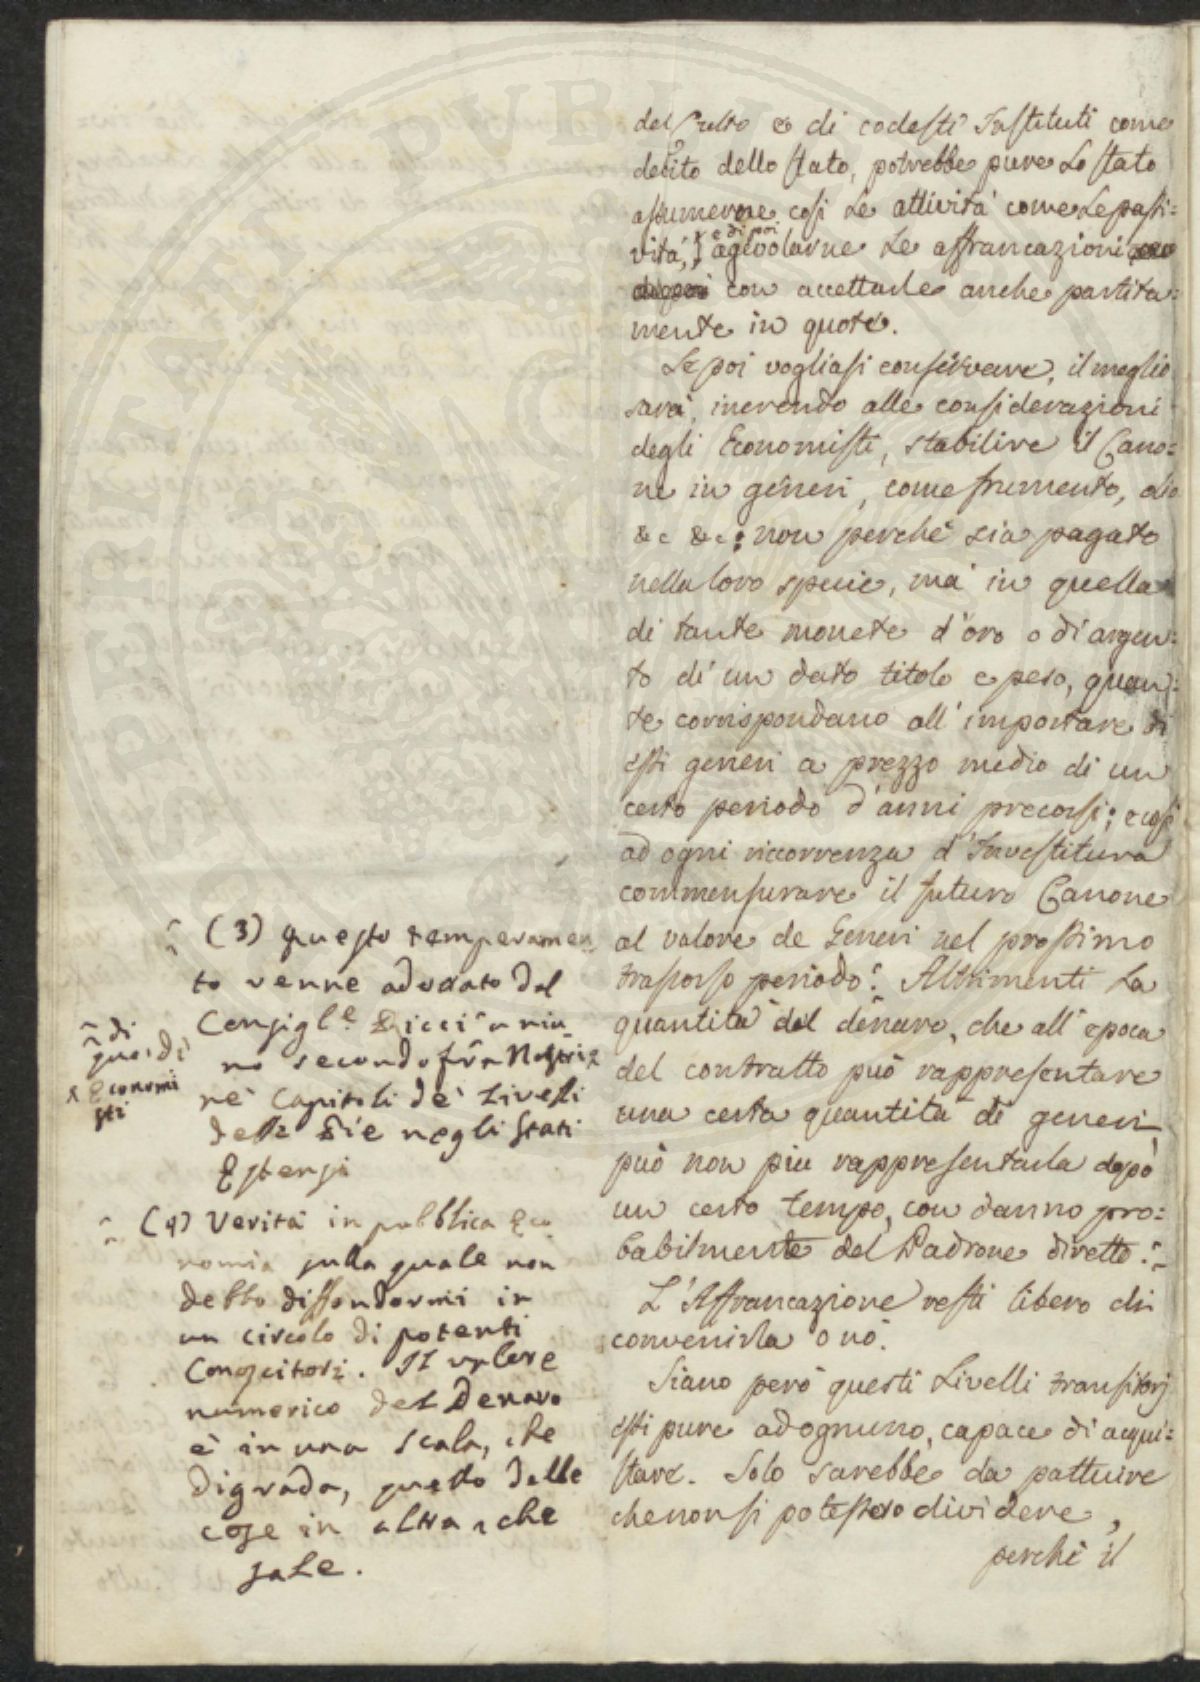 del Culto e di codesti Instituti come
debito dello Stato, potrebbe pure lo Stato
assumerne così le attività come le passi=
vità, e di poi agevolarne le affrancazioni
con accettarle anche partita=
mente in quote.
Se poi vogliasi conservare, il meglio
sarà, inerendo alle considerazioni
degli Economisti, stabilire il Cano=
ne in generi, come frumento, olio
&c &c: non perchè sia pagato
nella loro specie, mà in quella
di tante monete d'oro o di argen=
to di un dato titolo e peso, quan=
te corrispondano all'importare di
essi generi a prezzo medio di un
certo periodo d'anni precorsi; e così
ad ogni riccorrenza d'Investitura
commensurare il futuro Canone
al valore de Generi nel prossimo
trascorso periodo. Altrimenti la
quantità del denaro, che all'epoca
del contratto può rappresentare
una certa quantità di generi,
può non più rappresentarla dopo
un certo tempo, con danno pro=
babilmente del Padrone diretto.
L'Affrancazione resti libero di
convenirla o nò.
Siano però questi Livelli transitorj
essi pure ad ognuno, capace di acqui=
stare. Solo sarebbe da pattuire
che non si potessero dividere,
perchè il
(3) Questo temperamen
to venne adottato dal
Consigl.e Ricci
no secondo
nè Capitoli de' Livelli
negli Stati
Estensi
di
quei di
Economi
sti
(4) Verità in pubblica Eco
nomia sulla quale non
debbo diffondermi in
un circolo di potenti
Conoscitori. Il valore
numerico del Denaro
è in una scala, che
digrada, questo delle
cose in altra, che
sale.